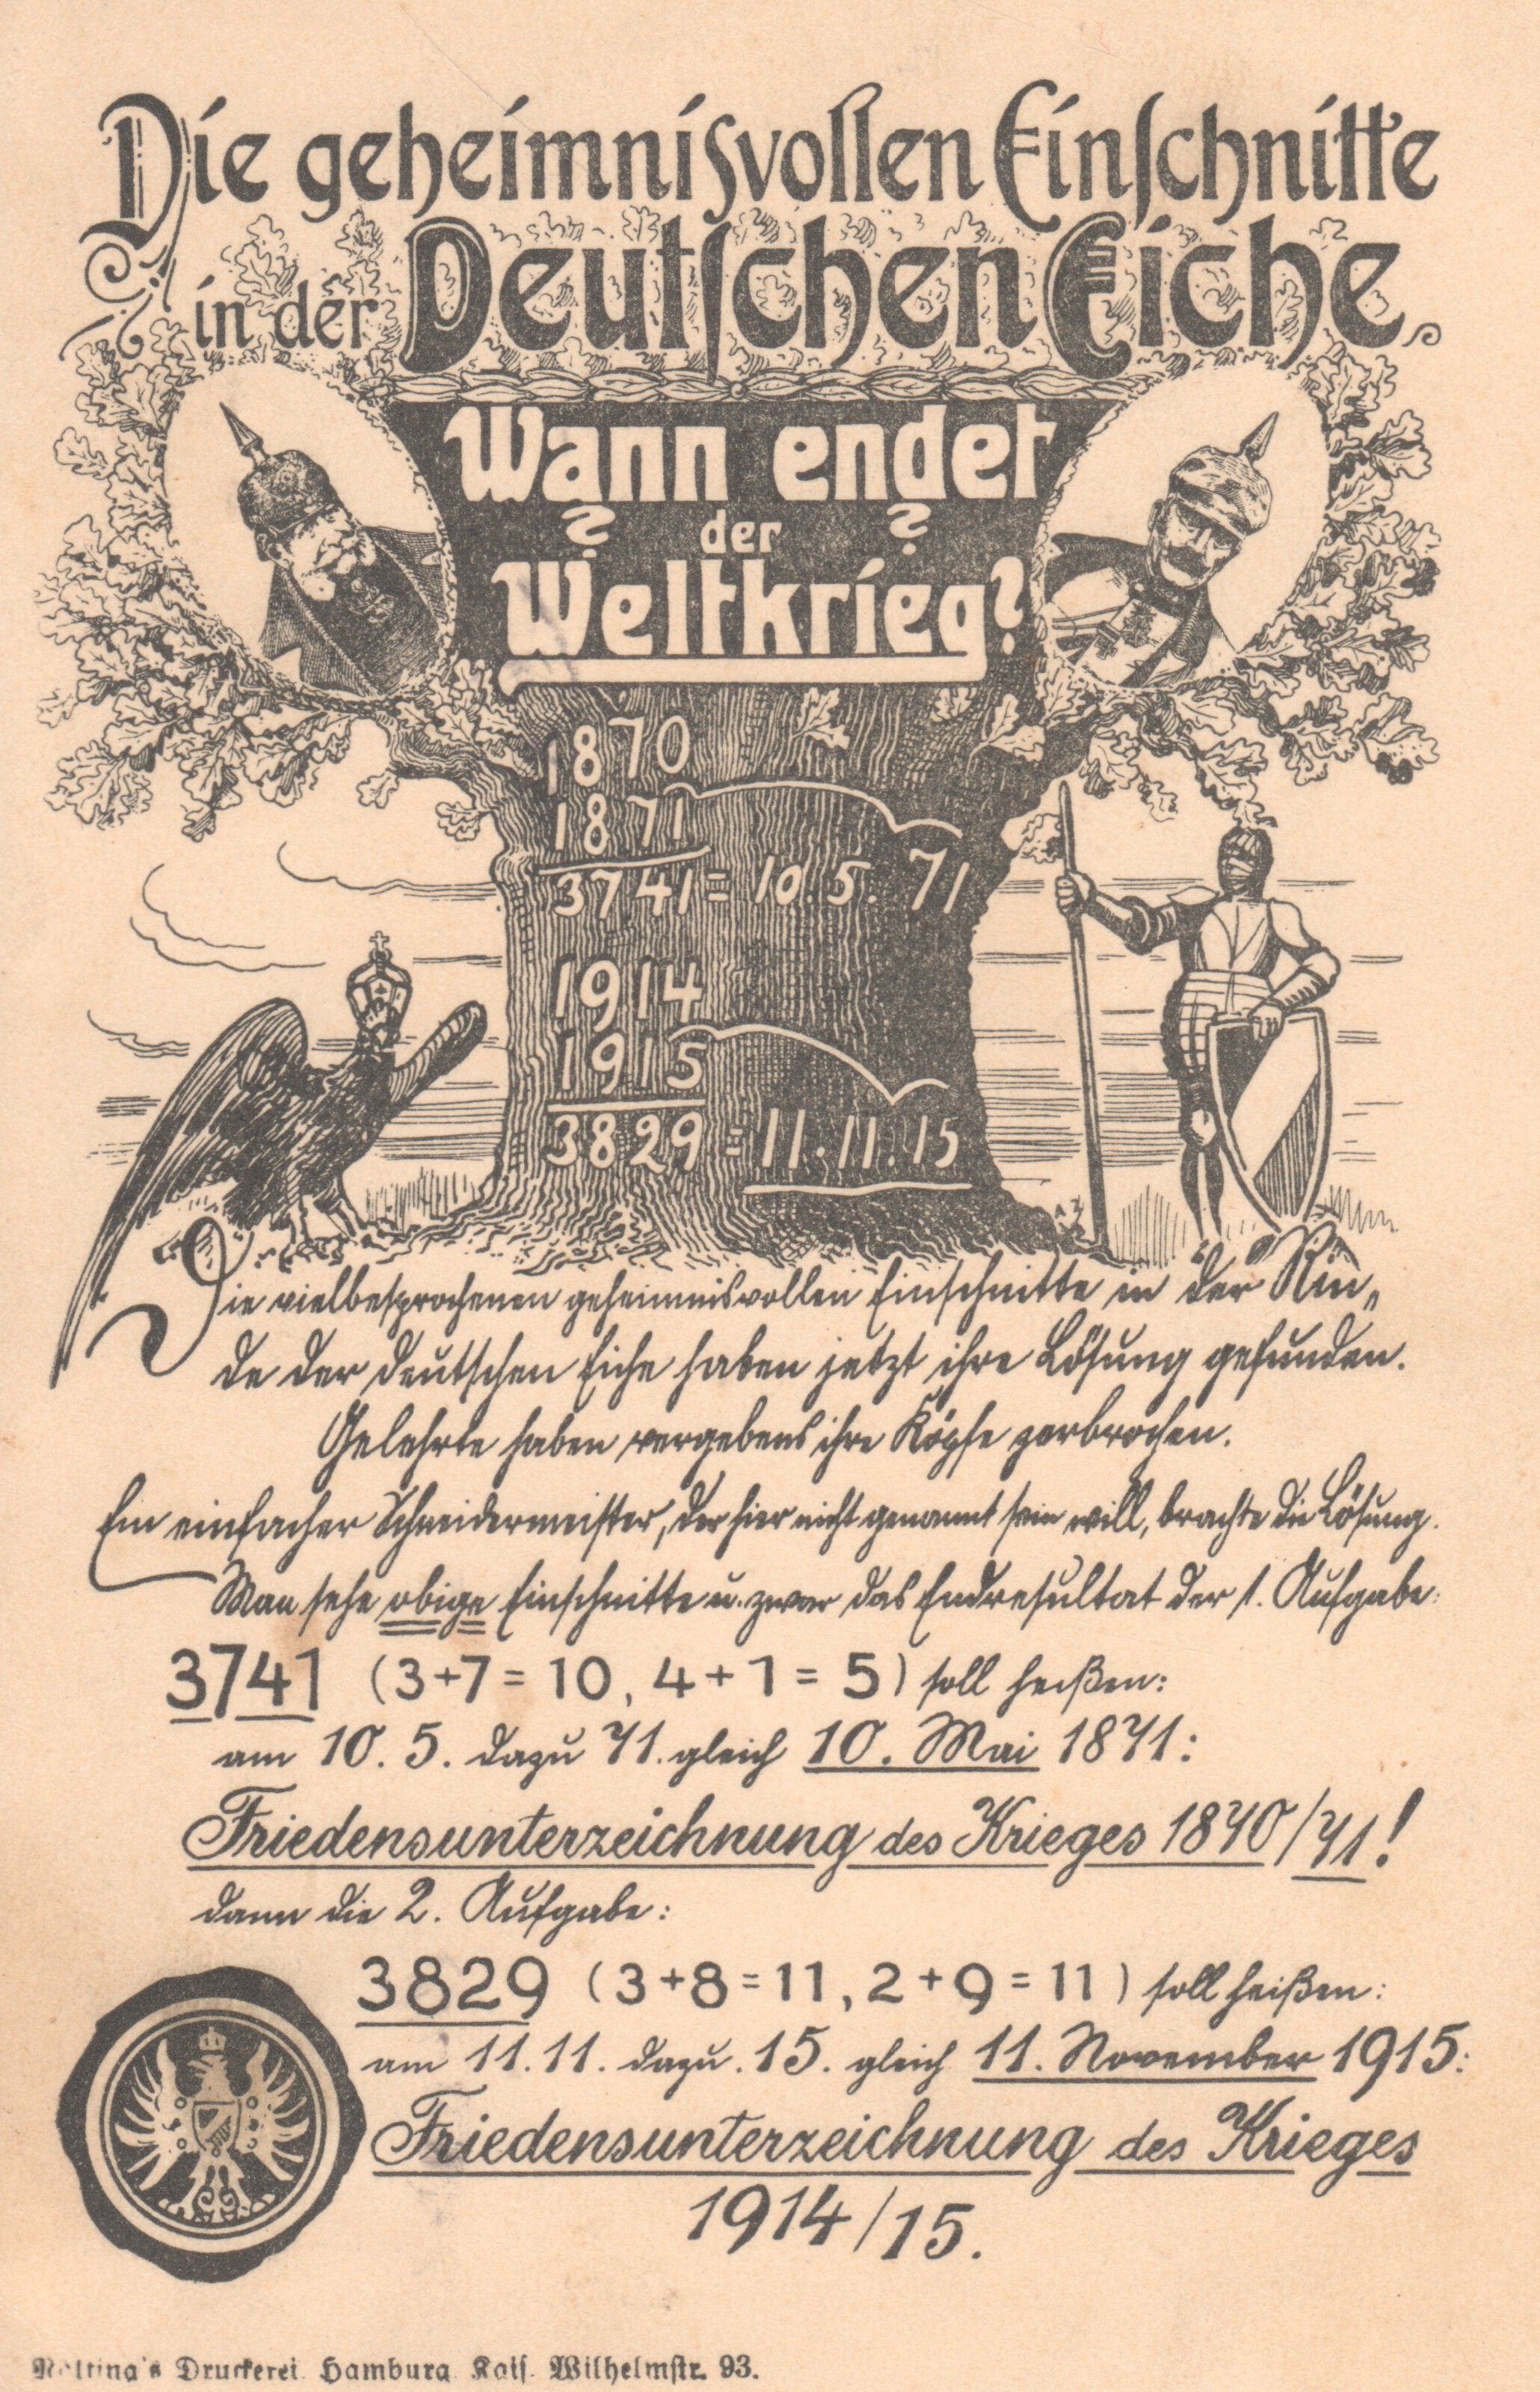 Die geheimnisvollen Einschnitte
in der Deutschen Eiche.
Wann endet
der
Weltkrieg?
1870
1871
3741 = 10. 5. 71
1914
1915
3829 = 11. 11. 15
Die vielbesprochenen geheimnisvollen Einschnitte in der Rin„
de der deutschen Eiche haben jetzt ihre Lösung gefunden.
Gelehrte haben vergebens ihre Köpfe zerbrochen.
Ein einfacher Schneidermeister, der hier nicht genannt sein will, brachte die Lösung.
Man sehe obige Einschnitte u. zwar das Endresultat der 1. Aufgabe:
3741 (3+7=10, 4+1=5) soll heißen:
am 10. 5. dazu 71. gleich 10. Mai 1871:
Friedensunterzeichnung des Krieges 1870/71!
dann die 2. Aufgabe:
3829 (3+8=11, 2+9=11) soll heißen:
am 11. 11. dazu. 15. gleich 11. November 1915:
Friedensunterzeichnung des Krieges
1914/15.
Druckerei Hamburg Kais. Wilhelmstr. 93.